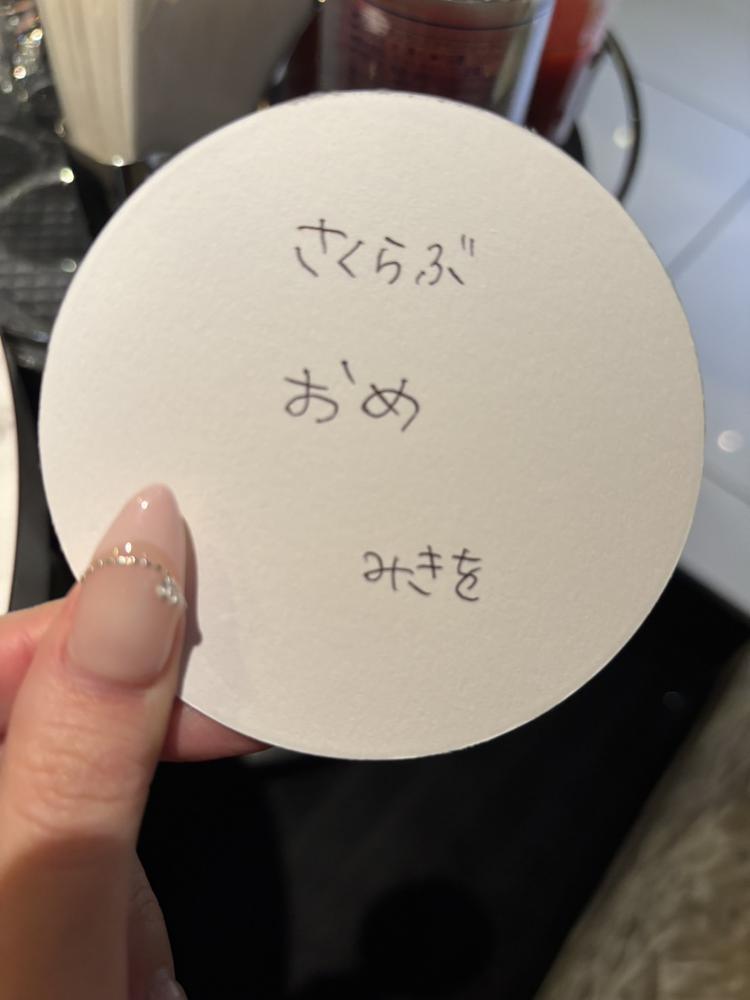 さくらぶ
おめ
みきを